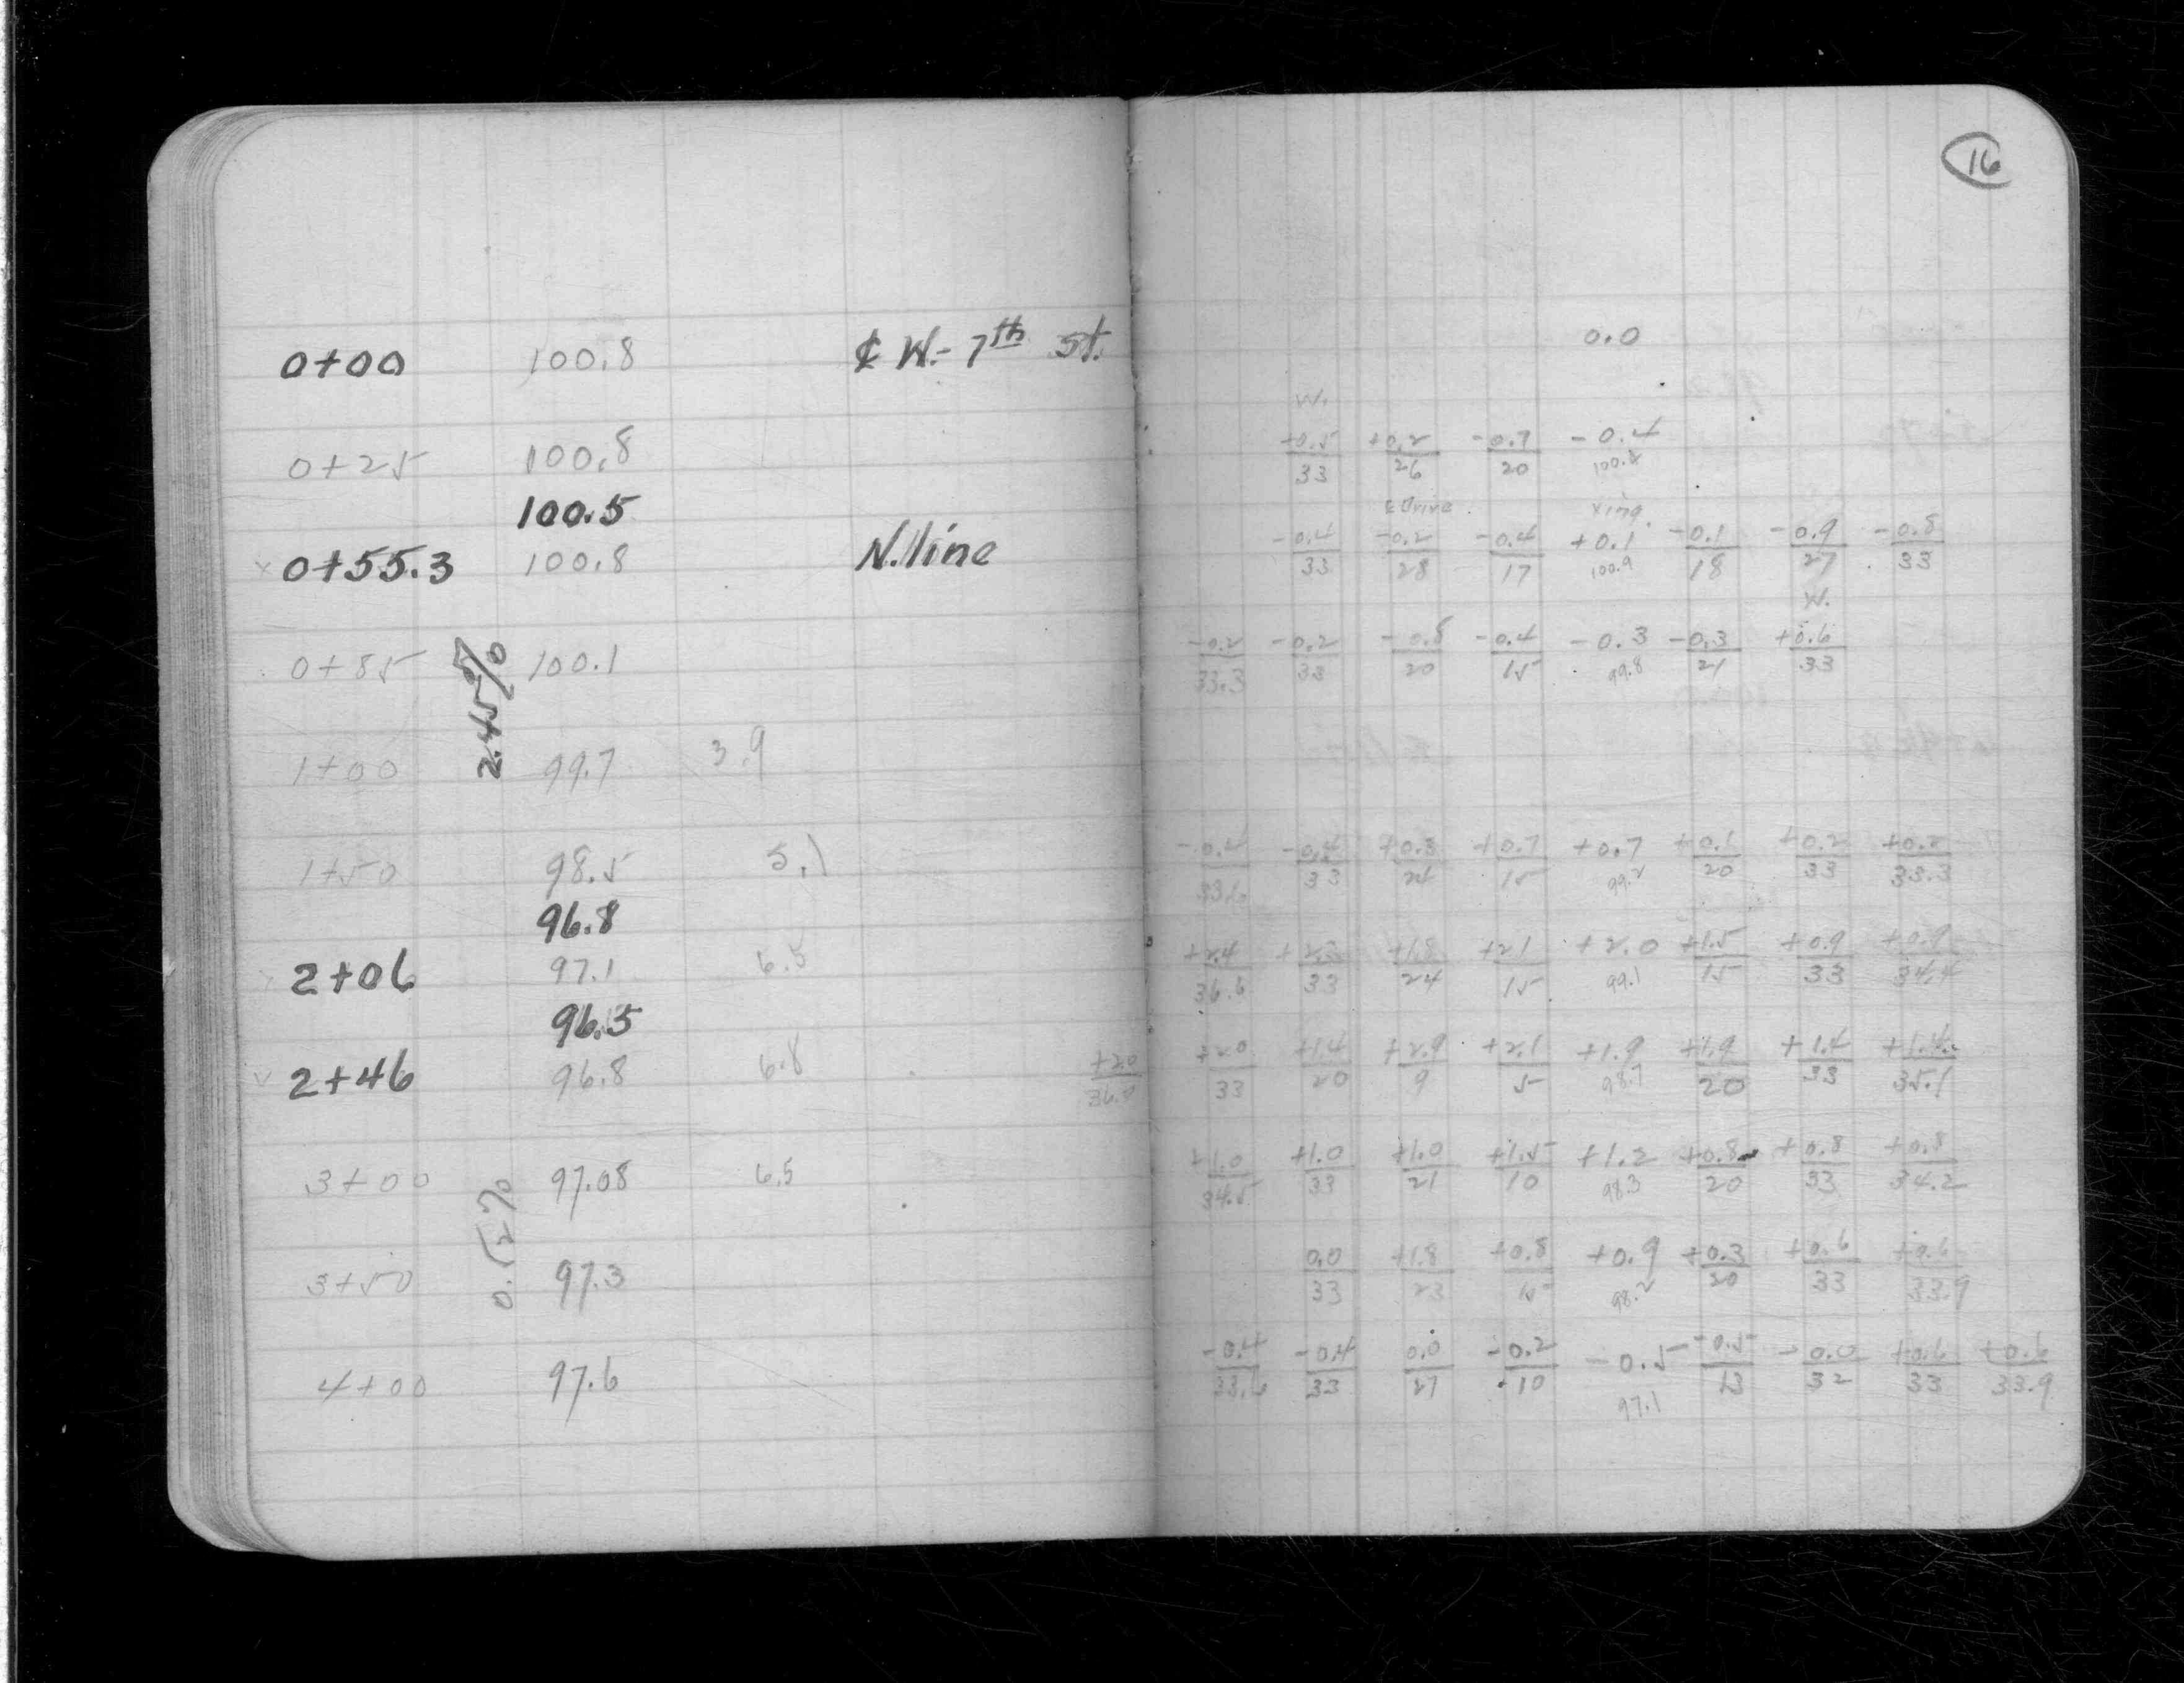 16
0+00 100.8 ₵ W.- 7th St. 0.0
W.
0+25 100.8 +0.5/33 +0.2/26 -0.7/20 -0.4 100.4
100.5 ₵ Drive Xing.
0+55.3 100.8 N. line -0.4/33 -0.2/28 -0.4/17 +0.1 100.9 -0.1/18 -0.9/27 -0.8/33
W.
0+85 100.1 -0.2/33.3 -0.2/33 -0.8/20 -0.4/15 -0.3 99.8 -0.3/21 +0.6/33
2.45%
1+00 99.7 3.9
1+50 98.5 5.1 -0.4/33 +0.3/24 +0.7/15 +0.7 99.2 +0.1/20 +0.2/33 +0.2/33.3
96.8
2+06 97.1 6.5 +2.4/36.6 +2.3/33 +1.8/24 +2.1/15 +2.0 99.1 +1.5/15 +0.9/33 +0.9/34.4
96.5
2+46 96.8 6.8 +2.0/36.0 +2.0/33 +1.4/20 +2.9/9 +2.1/5 +1.9 98.7 +1.9/20 +1.4/33 +1.4/35.1
3+00 97.08 6.5 +1.0/34.5 +1.0/33 +1.0/21 +1.5/10 +1.2 98.3 +0.8/20 +0.8/33 +0.8/34.2
0.52%
3+50 97.3 0.0/33 +1.8/23 +0.8/15 +0.9 98.2 +0.3/20 +0.6/33 +0.6/33.9
4+00 97.6 -0.4/33.6 -0.4/33 0.0/27 -0.2/10 -0.5 97.1 -0.5/13 -0.0/32 +0.6/33 +0.6/33.9